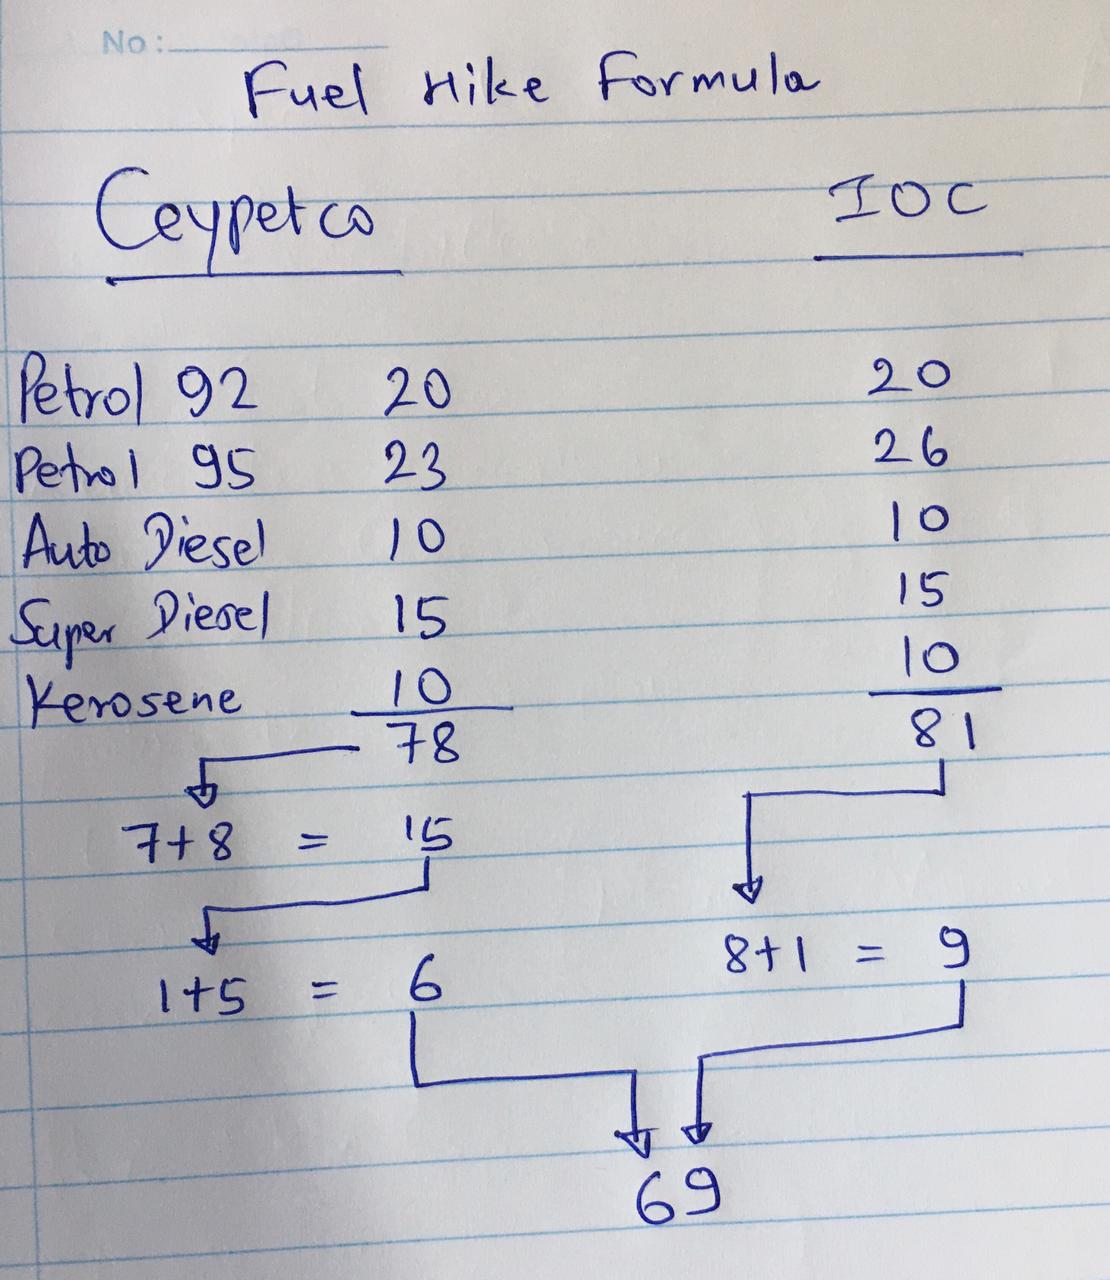 No:
Fuel Hike Formula
Ceypetco IOC
Petrol 92 20 20
Petrol 95 23 26
Auto Diesel 10 10
Super Diesel 15 15
Kerosene 10 10
78 81
7+8 = 15
8+1 = 9
1+5 = 6
69